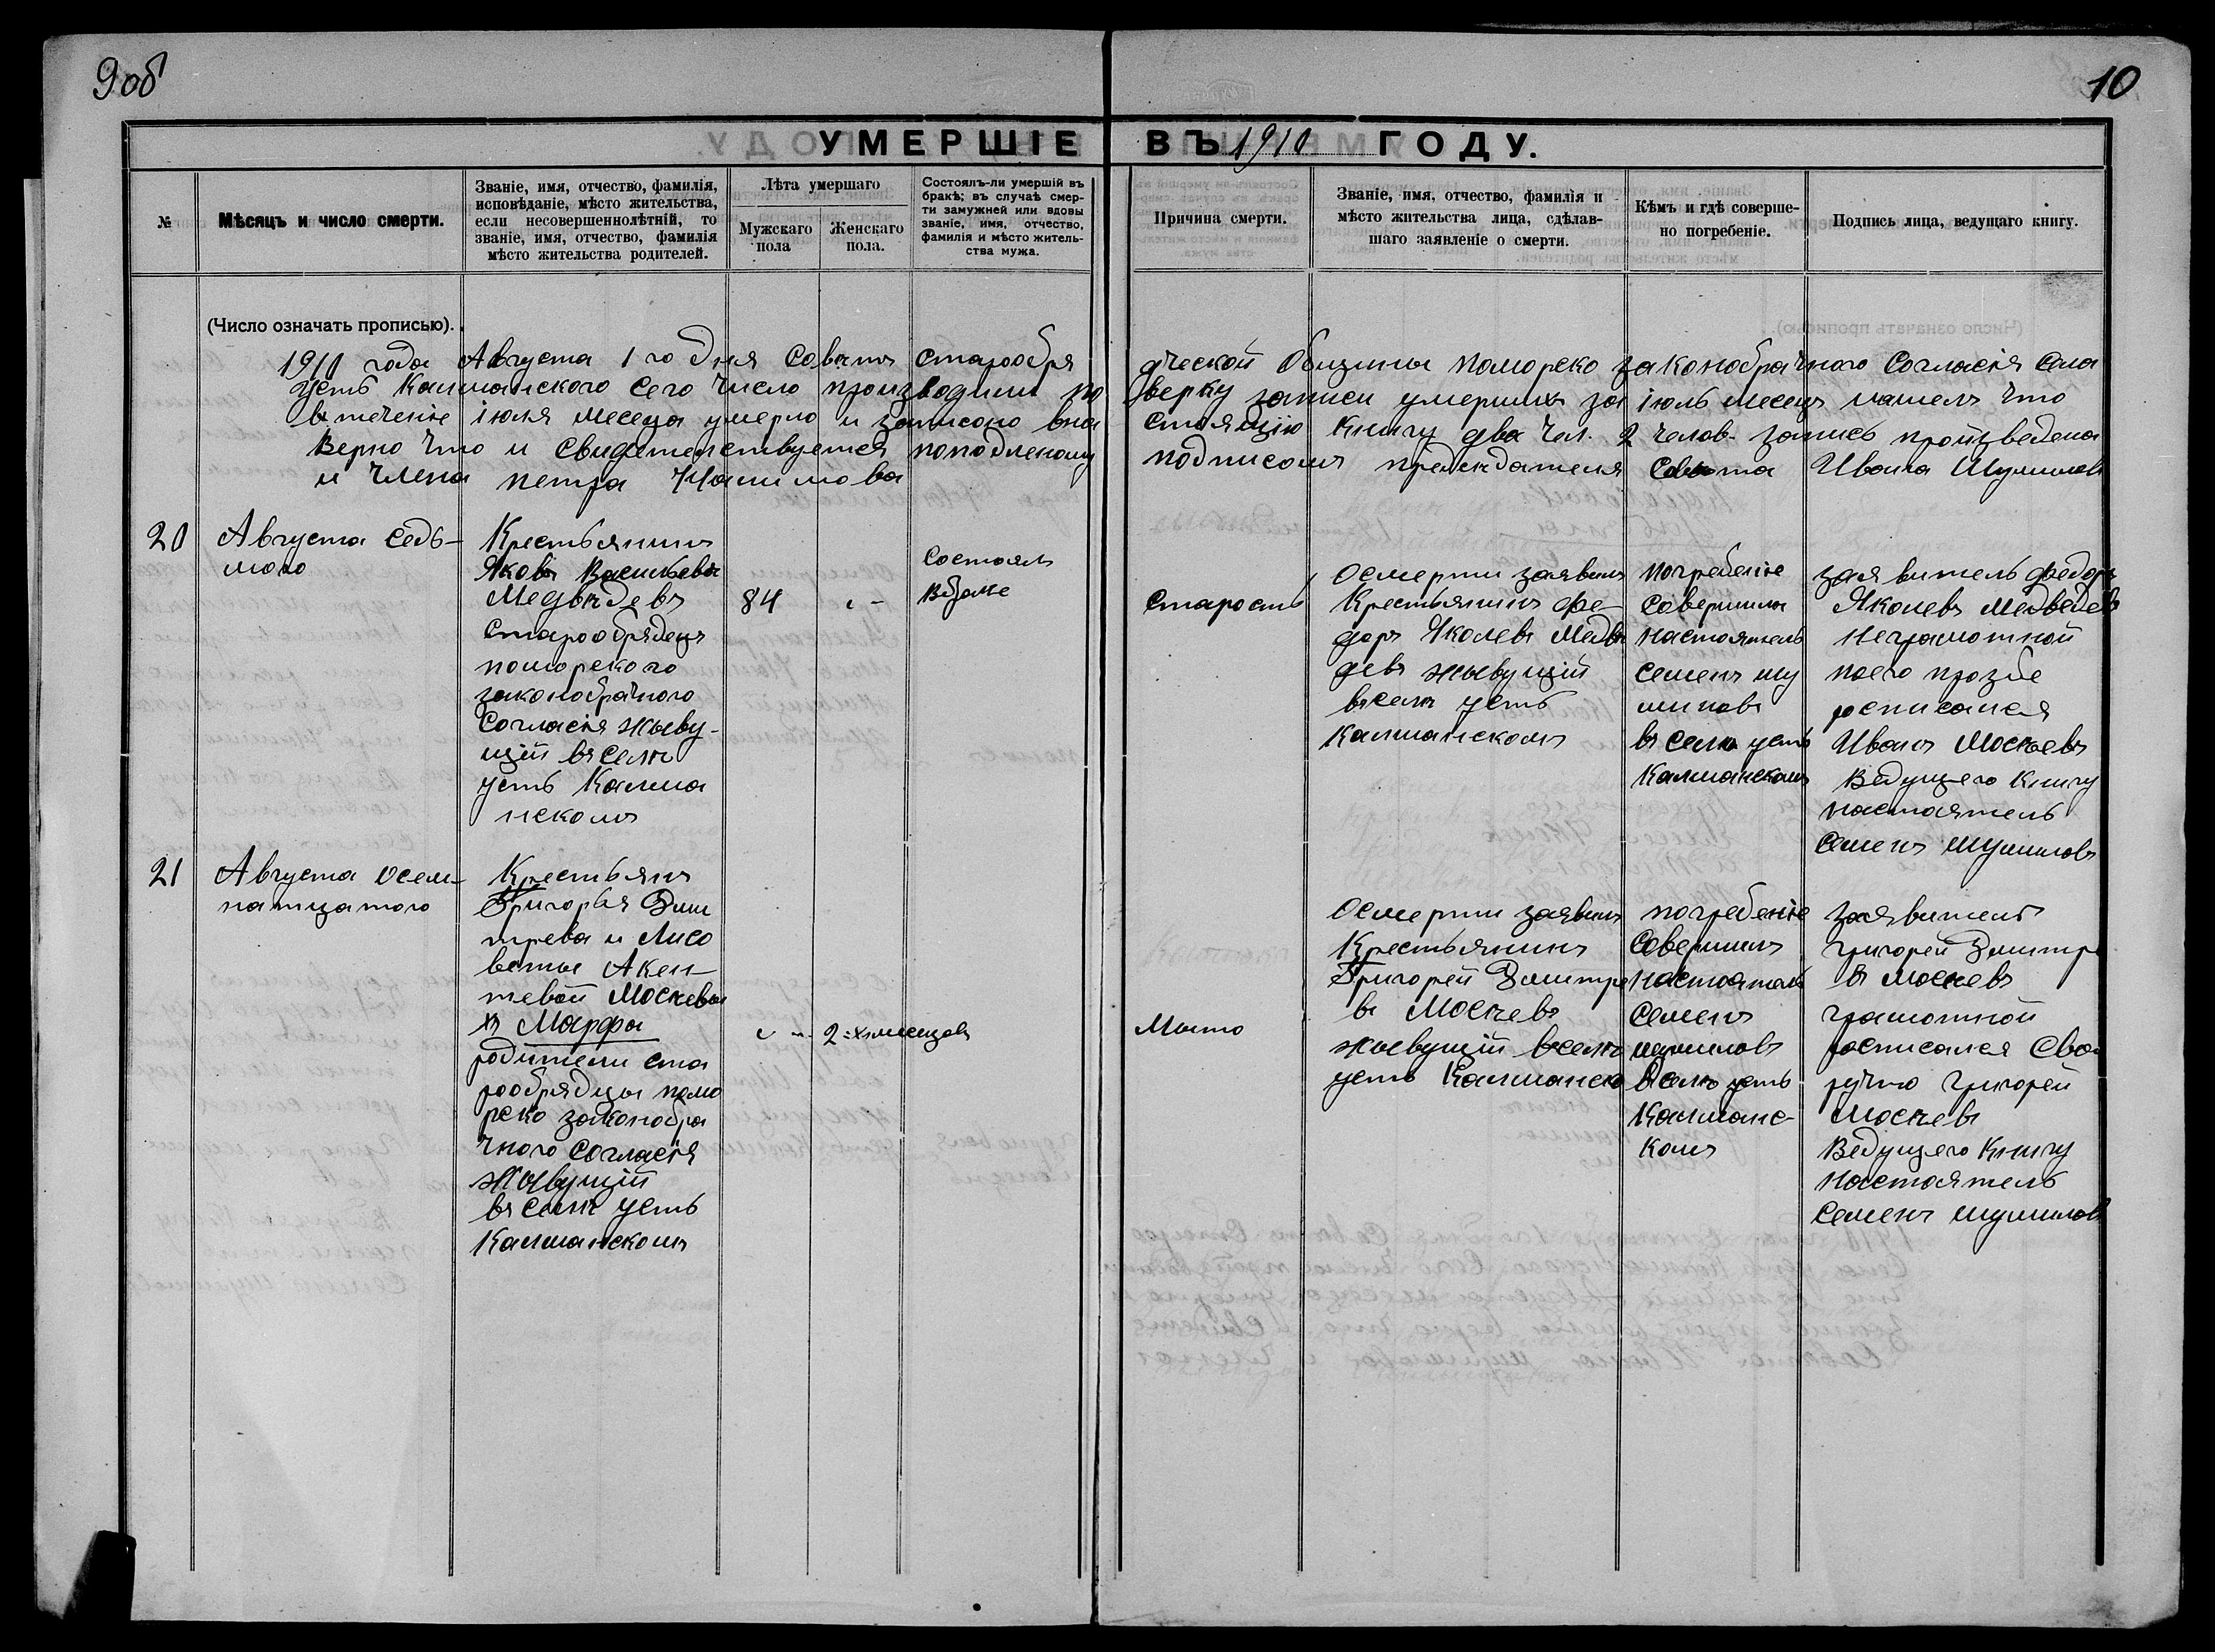 9 об
10
УМЕРШІЕ ВЪ 1910 ГОДУ.
№
Мѣсяцъ и число смерти.
Званіе, имя, отчество, фамилія,
исповѣданіе, мѣсто жительства,
если несовершеннолѣтній, то
званіе, имя, отчество, фамилія
мѣсто жительства родителей.
Лѣта умершаго
Мужскаго
пола
Женскаго
пола.
Состоялъ-ли умершій въ
бракѣ; въ случаѣ смер-
ти замужней или вдовы
званіе, имя, отчество,
фамилія и мѣсто житель-
ства мужа.
Причина смерти.
Званіе, имя, отчество, фамилія и
мѣсто жительства лица, сдѣлав-
шаго заявленіе о смерти.
Кѣмъ и гдѣ соверше-
но погребеніе.
Подпись лица, ведущаго книгу.
(Число означать прописью).
1910 года Августа 1 го дня Советъ старообря дческой Общины поморско законобрачного Согласія села
Усть Калманского сего число производили по верку записи умершихъ за іюль месецъ нашелъ что
в течение июля месеца умерло и записоно вна стоящію Книгу два чел. 2 челов. запись произведена
Верно что и свидетельствуется поподленому подписомъ председателя Совѣта Ивана Шумилов
и члена петра
20
Августа седь-
мого
Крестьянинъ
Яковъ Васильевъ
Медвѣдевъ
старообрядецъ
поморского
законобрачного
Согласія жыву-
щій въ селѣ
усть Калма
нскомъ
84
"-
Состоялъ
Вбраке
старость
Осмерти заявилъ
Крестьянинъ Фе-
доръ Яколевъ Медвѣ
девъ жывущій
въ селѣ усть
Калманскомъ
погребеніе
совершилъ
настоятель
семенъ шу
миловъ
въ селѣ усть
Калманскомъ
заявитель федоръ
Яколевъ Медведевъ
неграмотной
поего прозбе
росписался
Иванъ Москвевъ
Ведущего Книгу
настоятель
Семенъ Шумиловъ
21
Августа осем-
натцатого
Крестьянъ
Григорья Дми
трева и Лисо
веты Акен-
тевой Москвевы
хъ Марфа
родители ста
рообрядцы помо
рско законобра
чного согласія
жывущій
въ селѣ усть
Калманскомъ
" -
2=хъ месецовъ
Мыто
Осмерти заявилъ
Крестьянинъ
Григорей Дмитре
въ Москвевъ
жывущій вселѣ
усть Калманско
погребеніе
совершилъ
настоятель
семенъ
шумиловъ
Вселѣ усть
Калманс-
комъ
заявитель
григорей Дмитре
въ Москвевъ
грамотной
росписался Сво
ручно григорей
Москвевъ
Ведущего Книгу
настоятель
семенъ шумиловъ